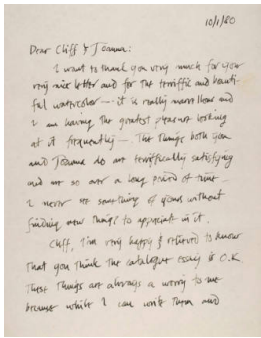 10/1/80
Dear Cliff & Joanna:
I want to thank you very much for your
very nice letter and for the terrific and beauti-
ful watercolor — it is really marvellous and
I am having the greatest pleasure looking
at it frequently — The things both you
and Joanna do are terrifically satisfying
and are so over a long period of time —
I never see something of yours without
finding new things to appreciate in it.
Cliff, I'm very happy & relieved to know
that you think the catalogue essay is O.K.
These things are always a worry to me
because while I can write them and